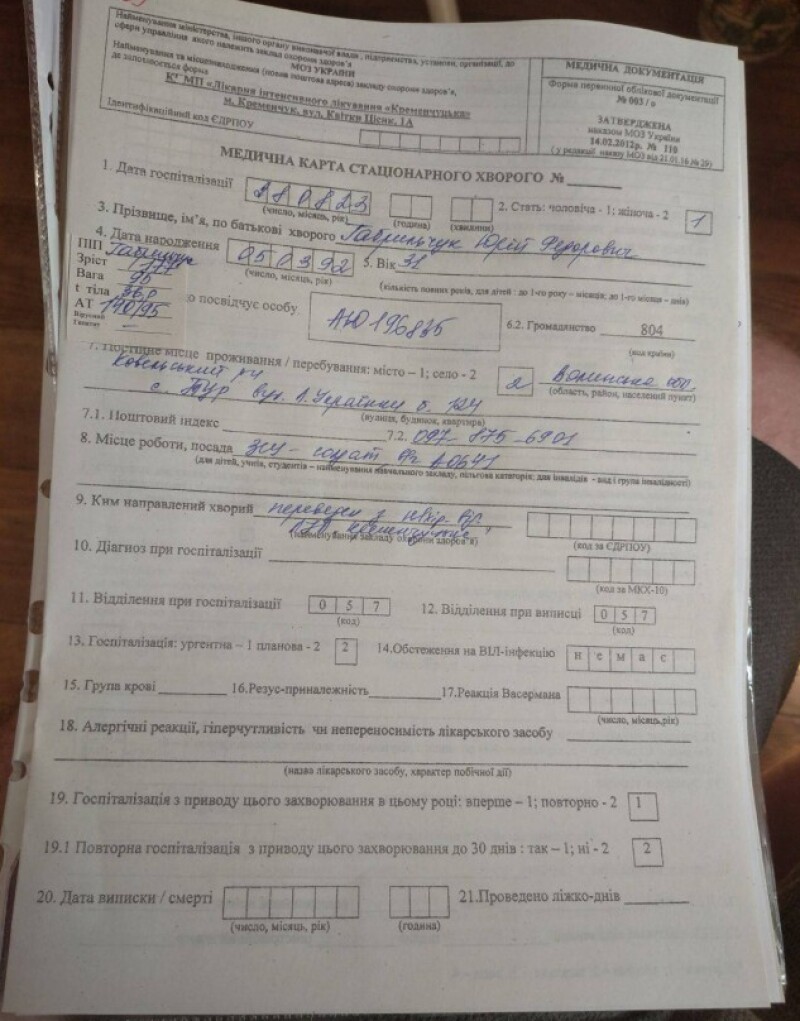 Найменування міністерства, іншого органу виконавчої влади, підприємства, установи, організації, до
сфери управління якого належить заклад охорони здоров'я
МОЗ УКРАЇНИ
Найменування та місцезнаходження (повна поштова адреса) закладу охорони здоров'я,
де заповнюється форма
КНМП «Лікарня інтенсивного лікування «Кременчуцька»
м. Кременчук, вул. Квітки Цісик, 1А
Ідентифікаційний код ЄДРПОУ
МЕДИЧНА ДОКУМЕНТАЦІЯ
Форма первинної облікової документації
№ 003 / о
ЗАТВЕРДЖЕНА
наказом МОЗ України
14.02.2012р. № 110
( у редакції наказу МОЗ від 21.01.16 № 29)
МЕДИЧНА КАРТА СТАЦІОНАРНОГО ХВОРОГО №
1. Дата госпіталізації 280823
(число, місяць, рік) (година) (хвилини)
2. Стать: чоловіча - 1; жіноча - 2 1
3. Прізвище, ім'я, по батькові хворого Гаврильчук Юрій Федорович
4. Дата народження 050392 5. Вік 31
(число, місяць, рік)
(кількість повних років, для дітей : до 1-го року – місяців; до 1-го місяця – днів)
ПІП
Зріст 177
Вага 95
t тіла 36,8
АТ 140/95
о посвідчує особу АЮ196835
6.2. Громадянство 804
(код країни)
7. Постійне місце проживання / перебування: місто – 1; село - 2 2 Волинська обл.
(область, район, населений пункт)
Ковельський р-н
с. Тур вул. Л.Українки б. 124
(вулиця, будинок, квартира)
7.1. Поштовий індекс 7.2. 097-875-6901
8. Місце роботи, посада ЗСУ - солдат вч А0641
(для дітей, учнів, студентів – найменування навчального закладу, пільгова категорія; для інвалідів - вид і група інвалідності)
9. Ким направлений хворий переведен з
(найменування закладу охорони здоров'я) (код за ЄДРПОУ)
10. Діагноз при госпіталізації
(код за МКХ-10)
11. Відділення при госпіталізації 0 5 7 12. Відділення при виписці 0 5 7
(код) (код)
13. Госпіталізація: ургентна – 1 планова - 2 2 14.Обстеження на ВІЛ-інфекцію н е м а є
15. Група крові 16.Резус-приналежність 17.Реакція Васермана
(число, місяць,рік)
18. Алергічні реакції, гіперчутливість чи непереносимість лікарського засобу
(назва лікарського засобу, характер побічної дії)
19. Госпіталізація з приводу цього захворювання в цьому році: вперше – 1; повторно - 2 1
19.1 Повторна госпіталізація з приводу цього захворювання до 30 днів : так – 1; ні - 2 2
20. Дата виписки / смерті 21.Проведено ліжко-днів
(число, місяць, рік) (година)